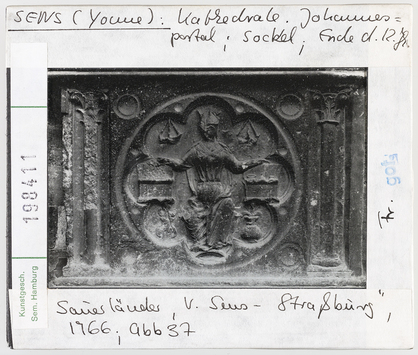 SENS (Yonne): Kathedrale. Johannes=
portal; Sockel; Ende d. 12. Jh.
198411
Kunstgesch.
Sem. Hamburg
got.
Fr.
Sauerländer, "V. Sens - Straßburg",
1966; Abb 37